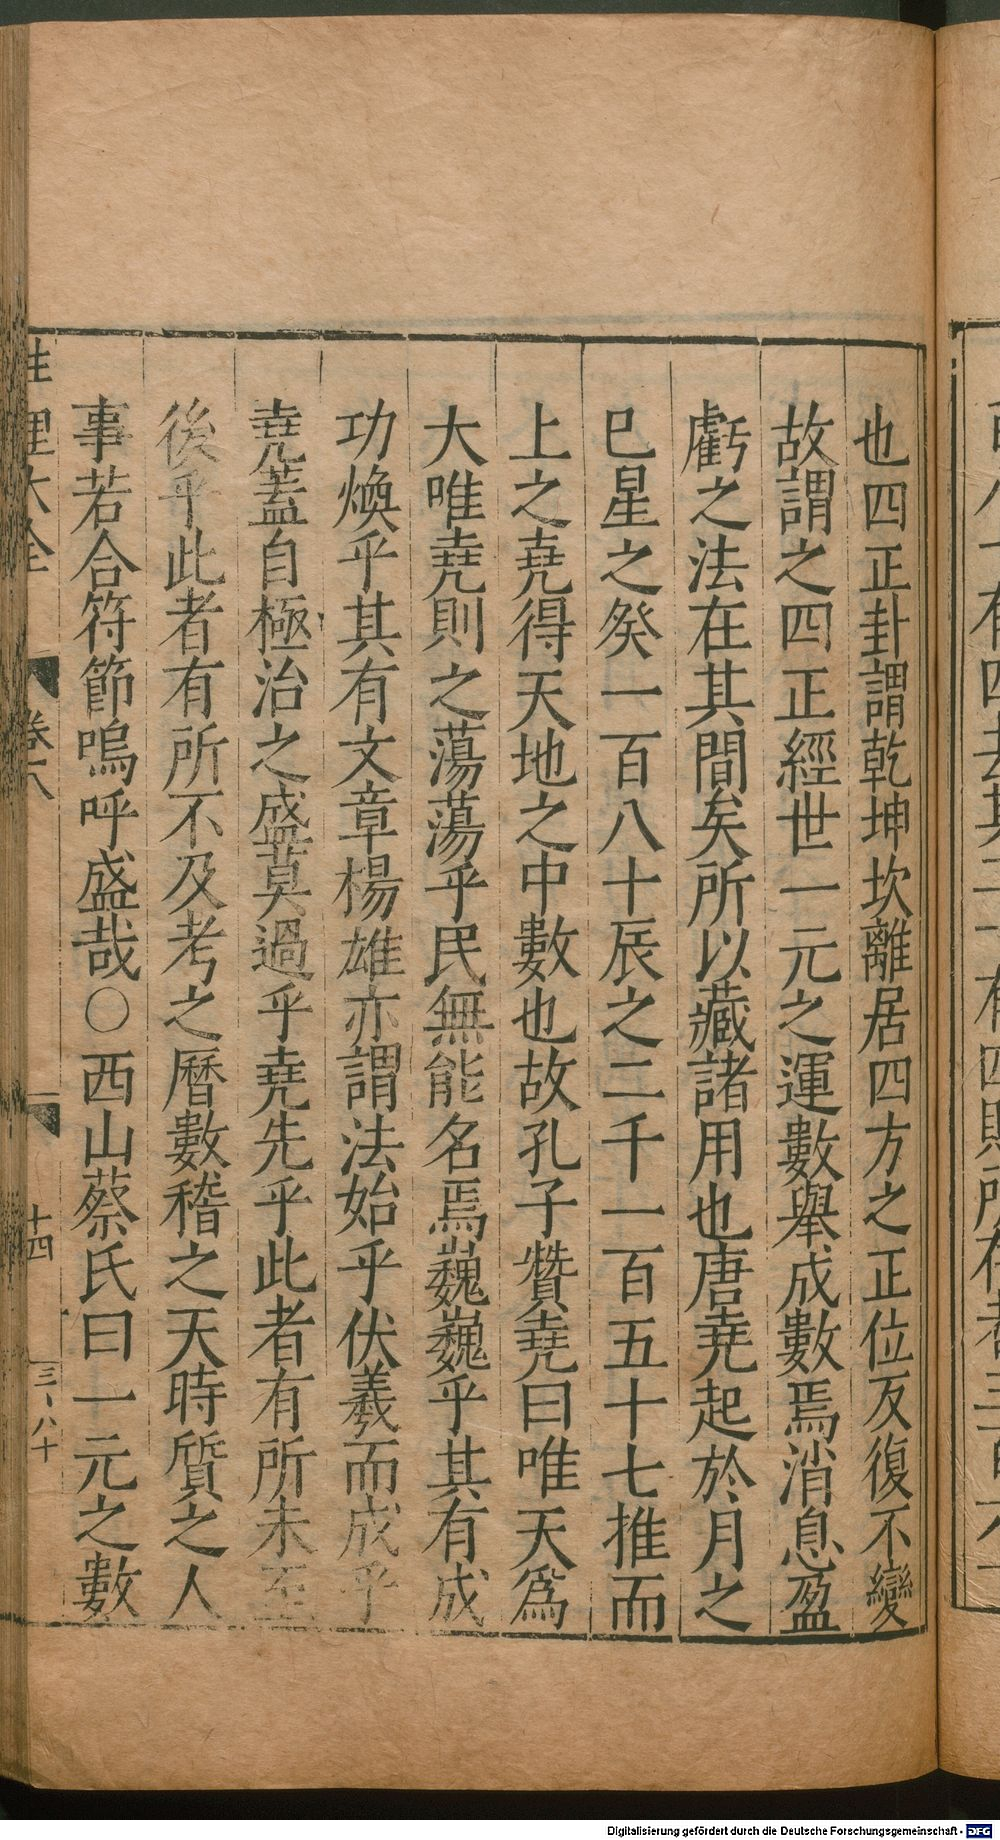 也四正卦謂乾坤坎離居四方之正位反復不變
故謂之四正經世一元之運數舉成數焉消息盈
虧之法在其間矣所以藏諸用也唐堯起於月之
巳星之癸一百八十辰之二千一百五十七推而
上之堯得天地之中數也故孔子贊堯曰唯天爲
大唯堯則之蕩蕩乎民無能名焉巍巍乎其有成
功煥乎其有文章楊雄亦謂法始乎伏羲而成乎
堯蓋自極治之盛莫過乎堯先乎此者有所未至
後乎此者有所不及考之曆數稽之天時質之人
事若合符節嗚呼盛哉○西山蔡氏曰一元之數
性理大全 卷六 十四 三八十
Digitalisierung gefördert durch die Deutsche Forschungsgemeinschaft - DFG